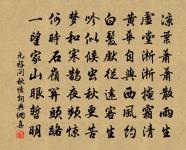 凉葉蕭蕭散雨聲
虛堂淅淅掩霜清
黃華自與西風約
白髮先從遠客生
吟似候蟲秋更苦
夢和寒鵲夜頻驚
何時石嶺關頭路
一望家山眼暫明
元好問秋懷詞典網書